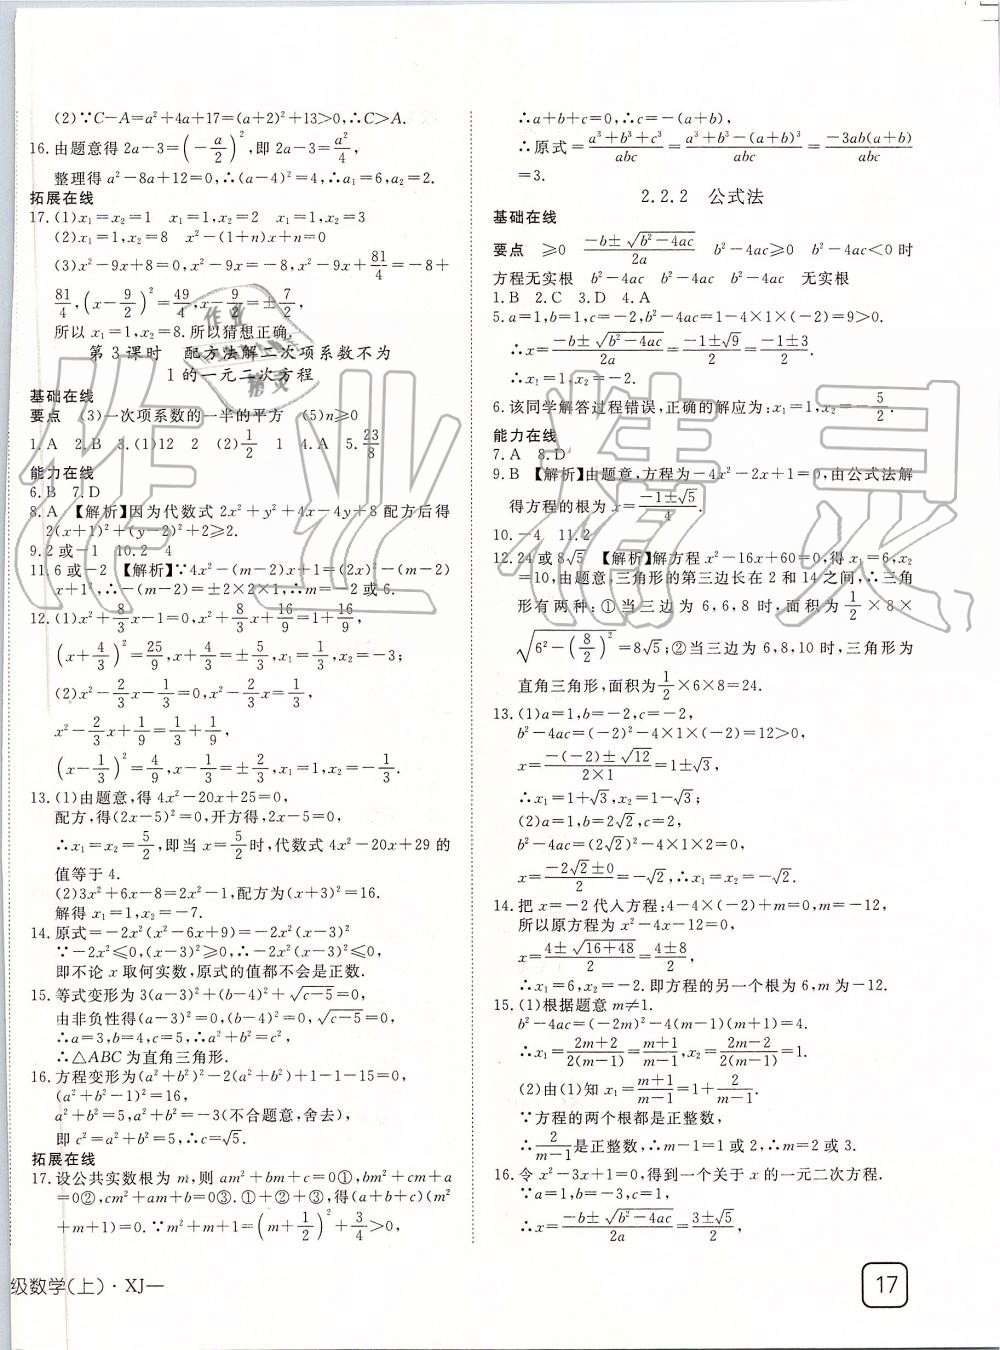 (2)∵C－A=a²+4a+17=(a+2)²+13>0,∴C>A.
16.由题意得2a－3=(－a/2)²,即2a－3=a²/4,
整理得a²－8a+12=0,∴(a－4)²=4,∴a₁=6,a₂=2.
拓展在线
17.(1)x₁=x₂=1 x₁=1,x₂=2 x₁=1,x₂=3
(2)x₁=1,x₂=8 x²－(1+n)x+n=0
(3)x²－9x+8=0,x²－9x=－8,x²－9x+81/4=－8+
81/4,(x－9/2)²=49/4,x－9/2=±7/2,
所以x₁=1,x₂=8.所以猜想正确.
第3课时 配方法解二次项系数不为
1的一元二次方程
基础在线
要点 (3)一次项系数的一半的平方 (5)n≥0
1.A 2.B 3.(1)12 2 (2)1/2 1 4.A 5.23/8
能力在线
6.B 7.D
8.A 【解析】因为代数式2x²+y²+4x－4y+8配方后得
2(x+1)²+(y－2)²+2≥2.
9.2或－1 10.2 4
11.6或－2 【解析】∵4x²－(m－2)x+1=(2x)²－(m－2)
x+1²,∴－(m－2)=±2×2×1,∴m=－2或6.
12.(1)x²+8/3x－1=0,x²+8/3x+16/9=1+16/9,
(x+4/3)²=25/9,x+4/3=±5/3,x₁=1/3,x₂=－3;
(2)x²－2/3x－1/3=0,x²－2/3x=1/3,
x²－2/3x+1/9=1/3+1/9,
(x－1/3)²=4/9,x－1/3=±2/3,x₁=1,x₂=－1/3.
13.(1)由题意,得4x²－20x+25=0,
配方,得(2x－5)²=0,开方得,2x－5=0,
∴x₁=x₂=5/2,即当x=5/2时,代数式4x²－20x+29的
值等于4.
(2)3x²+6x－8=2x²－1,配方为(x+3)²=16.
解得x₁=1,x₂=－7.
14.原式=－2x²(x²－6x+9)=－2x²(x－3)²
∵－2x²≤0,(x－3)²≥0,∴－2x²(x－3)²≤0,
即不论x取何实数,原式的值都不会是正数.
15.等式变形为3(a－3)²+(b－4)²+√(c－5)=0,
由非负性得(a－3)²=0,(b－4)²=0,√(c－5)=0,
∴a=3,b=4,c=5,∴a²+b²=c²,
∴△ABC为直角三角形.
16.方程变形为(a²+b²)²－2(a²+b²)+1－1－15=0,
(a²+b²－1)²=16,
a²+b²=5,a²+b²=－3(不合题意,舍去),
即c²=a²+b²=5,∴c=√5.
拓展在线
17.设公共实数根为m,则am²+bm+c=0①,bm²+cm+a
=0②,cm²+am+b=0③.①+②+③,得(a+b+c)(m²
+m+1)=0.∵m²+m+1=(m+1/2)²+3/4>0,
级数学(上)·XJ—
∴a+b+c=0,∴c=－(a+b),
∴原式=(a³+b³+c³)/abc=(a³+b³－(a+b)³)/abc=－3ab(a+b)/abc
=3.
2.2.2 公式法
基础在线
要点 ≥0 (－b±√(b²－4ac))/2a b²－4ac≥0 b²－4ac<0时
方程无实根 b²－4ac b²－4ac 无实根
1.B 2.C 3.D 4.A
5.a=1,b=1,c=－2,b²－4ac=1－4×1×(－2)=9>0.
∴x=(－b±√(b²－4ac))/2a=(－1±√9)/2=(－1±3)/2.
∴x₁=1,x₂=－2.
6.该同学解答过程错误,正确的解应为:x₁=1,x₂=－5/2.
能力在线
7.A 8.D
9.B 【解析】由题意,方程为－4x²－2x+1=0,由公式法解
得方程的根为x=(－1±√5)/4.
10.－4 11.2
12.24或8√5 【解析】解方程x²－16x+60=0,得x₁=6,x₂
=10,由题意,三角形的第三边长在2和14之间,∴三角
形有两种:①当三边为6,6,8时,面积为1/2×8×
√(6²－(8/2)²)=8√5;②当三边为6,8,10时,三角形为
直角三角形,面积为1/2×6×8=24.
13.(1)a=1,b=－2,c=－2,
b²－4ac=(－2)²－4×1×(－2)=12>0,
x=(－(－2)±√12)/(2×1)=1±√3,
∴x₁=1+√3,x₂=1－√3;
(2)a=1,b=2√2,c=2,
b²－4ac=(2√2)²－4×1×2=0,
x=(－2√2±0)/2=－√2,∴x₁=x₂=－√2.
14.把x=－2代入方程:4－4×(－2)+m=0,m=－12,
所以原方程为x²－4x－12=0,
x=(4±√(16+48))/2=(4±8)/2,
∴x₁=6,x₂=－2.即方程的另一个根为6,m为－12.
15.(1)根据题意m≠1.
b²－4ac=(－2m)²－4(m－1)(m+1)=4.
∴x₁=(2m+2)/(2(m－1))=(m+1)/(m－1),x₂=(2m－2)/(2(m－1))=1.
(2)由(1)知x₁=(m+1)/(m－1)=1+2/(m－1).
∵方程的两个根都是正整数,
∴2/(m－1)是正整数,∴m－1=1或2,∴m=2或3.
16.令x²－3x+1=0,得到一个关于x的一元二次方程.
∵a=1,b=－3,c=1,
∴x=(－b±√(b²－4ac))/2a=(3±√5)/2,
17
作业精灵